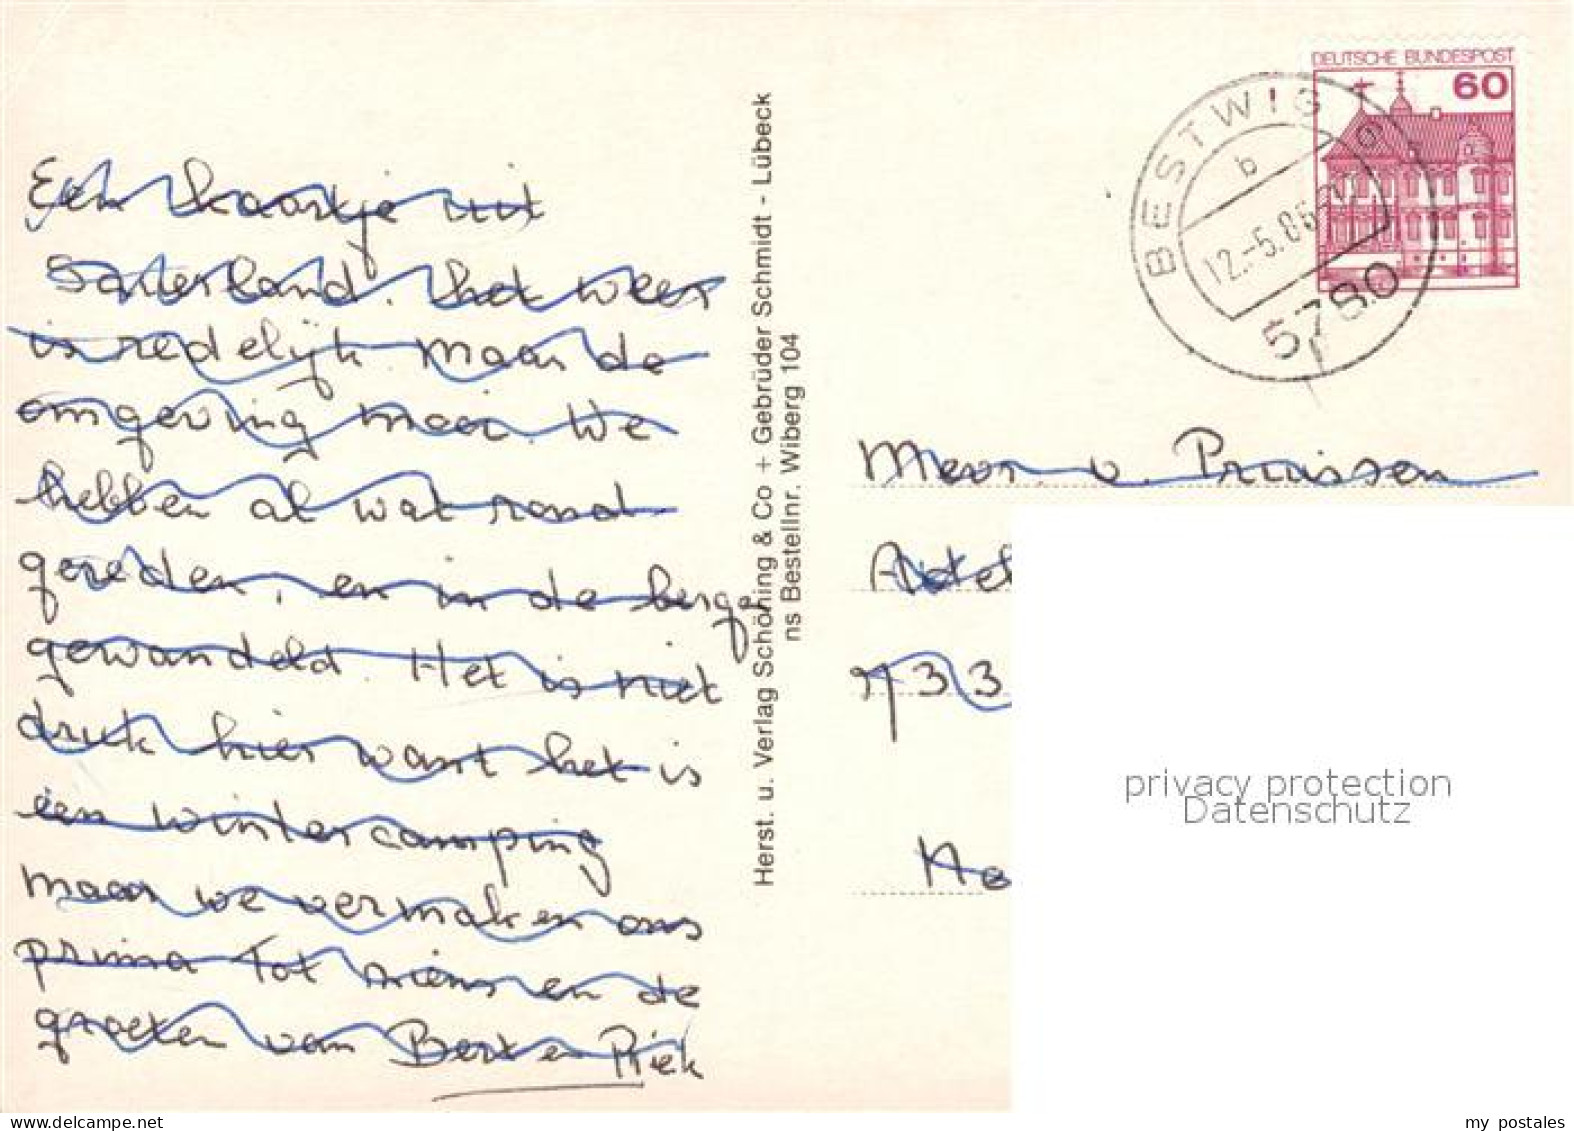 Een kaartje uit
Sauerland. het weer
is redelijk maar de
omgeving mooi. We
hebben al wat rond
gereden, en in de berge
gewandeld. Het is niet
druk hier want het is
een wintercamping
maar we vermaken ons
prima Tot ziens en de
groeten van Bert en Riek
Herst. u. Verlag Schöning & Co + Gebrüder Schmidt - Lübeck
ns Bestellnr. Wiberg 104
DEUTSCHE BUNDESPOST
60
BESTWIG
b
12.-5.86
5780
v. Pruissen
privacy protection
Datenschutz
delcampe.net
my postales